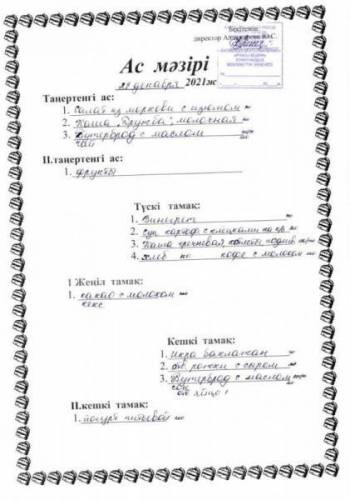 Бекітемін
директор
Ас мәзірі
декабря 2021ж
Таңертеңгі ас:
1. Салат из моркови с изюмом
2. Каша "Дружба" молочная
3. Бутерброд с маслом
чай
II.таңертеңгі ас:
1. фрукты
Түскі тамақ:
1. Винегрет
2. Суп картоф с клецками на кр
3. Каша гречневая котлеты подлив
4. хлеб кофе с молоком
1 Жеңіл тамақ:
1. какао с молоком
кекс
Кешкі тамақ:
1. Икра баклажан
2. рожки с сыром
3. Бутерброд с маслом
яйцо 1
II.кешкі тамақ:
1. йогурт питьевой